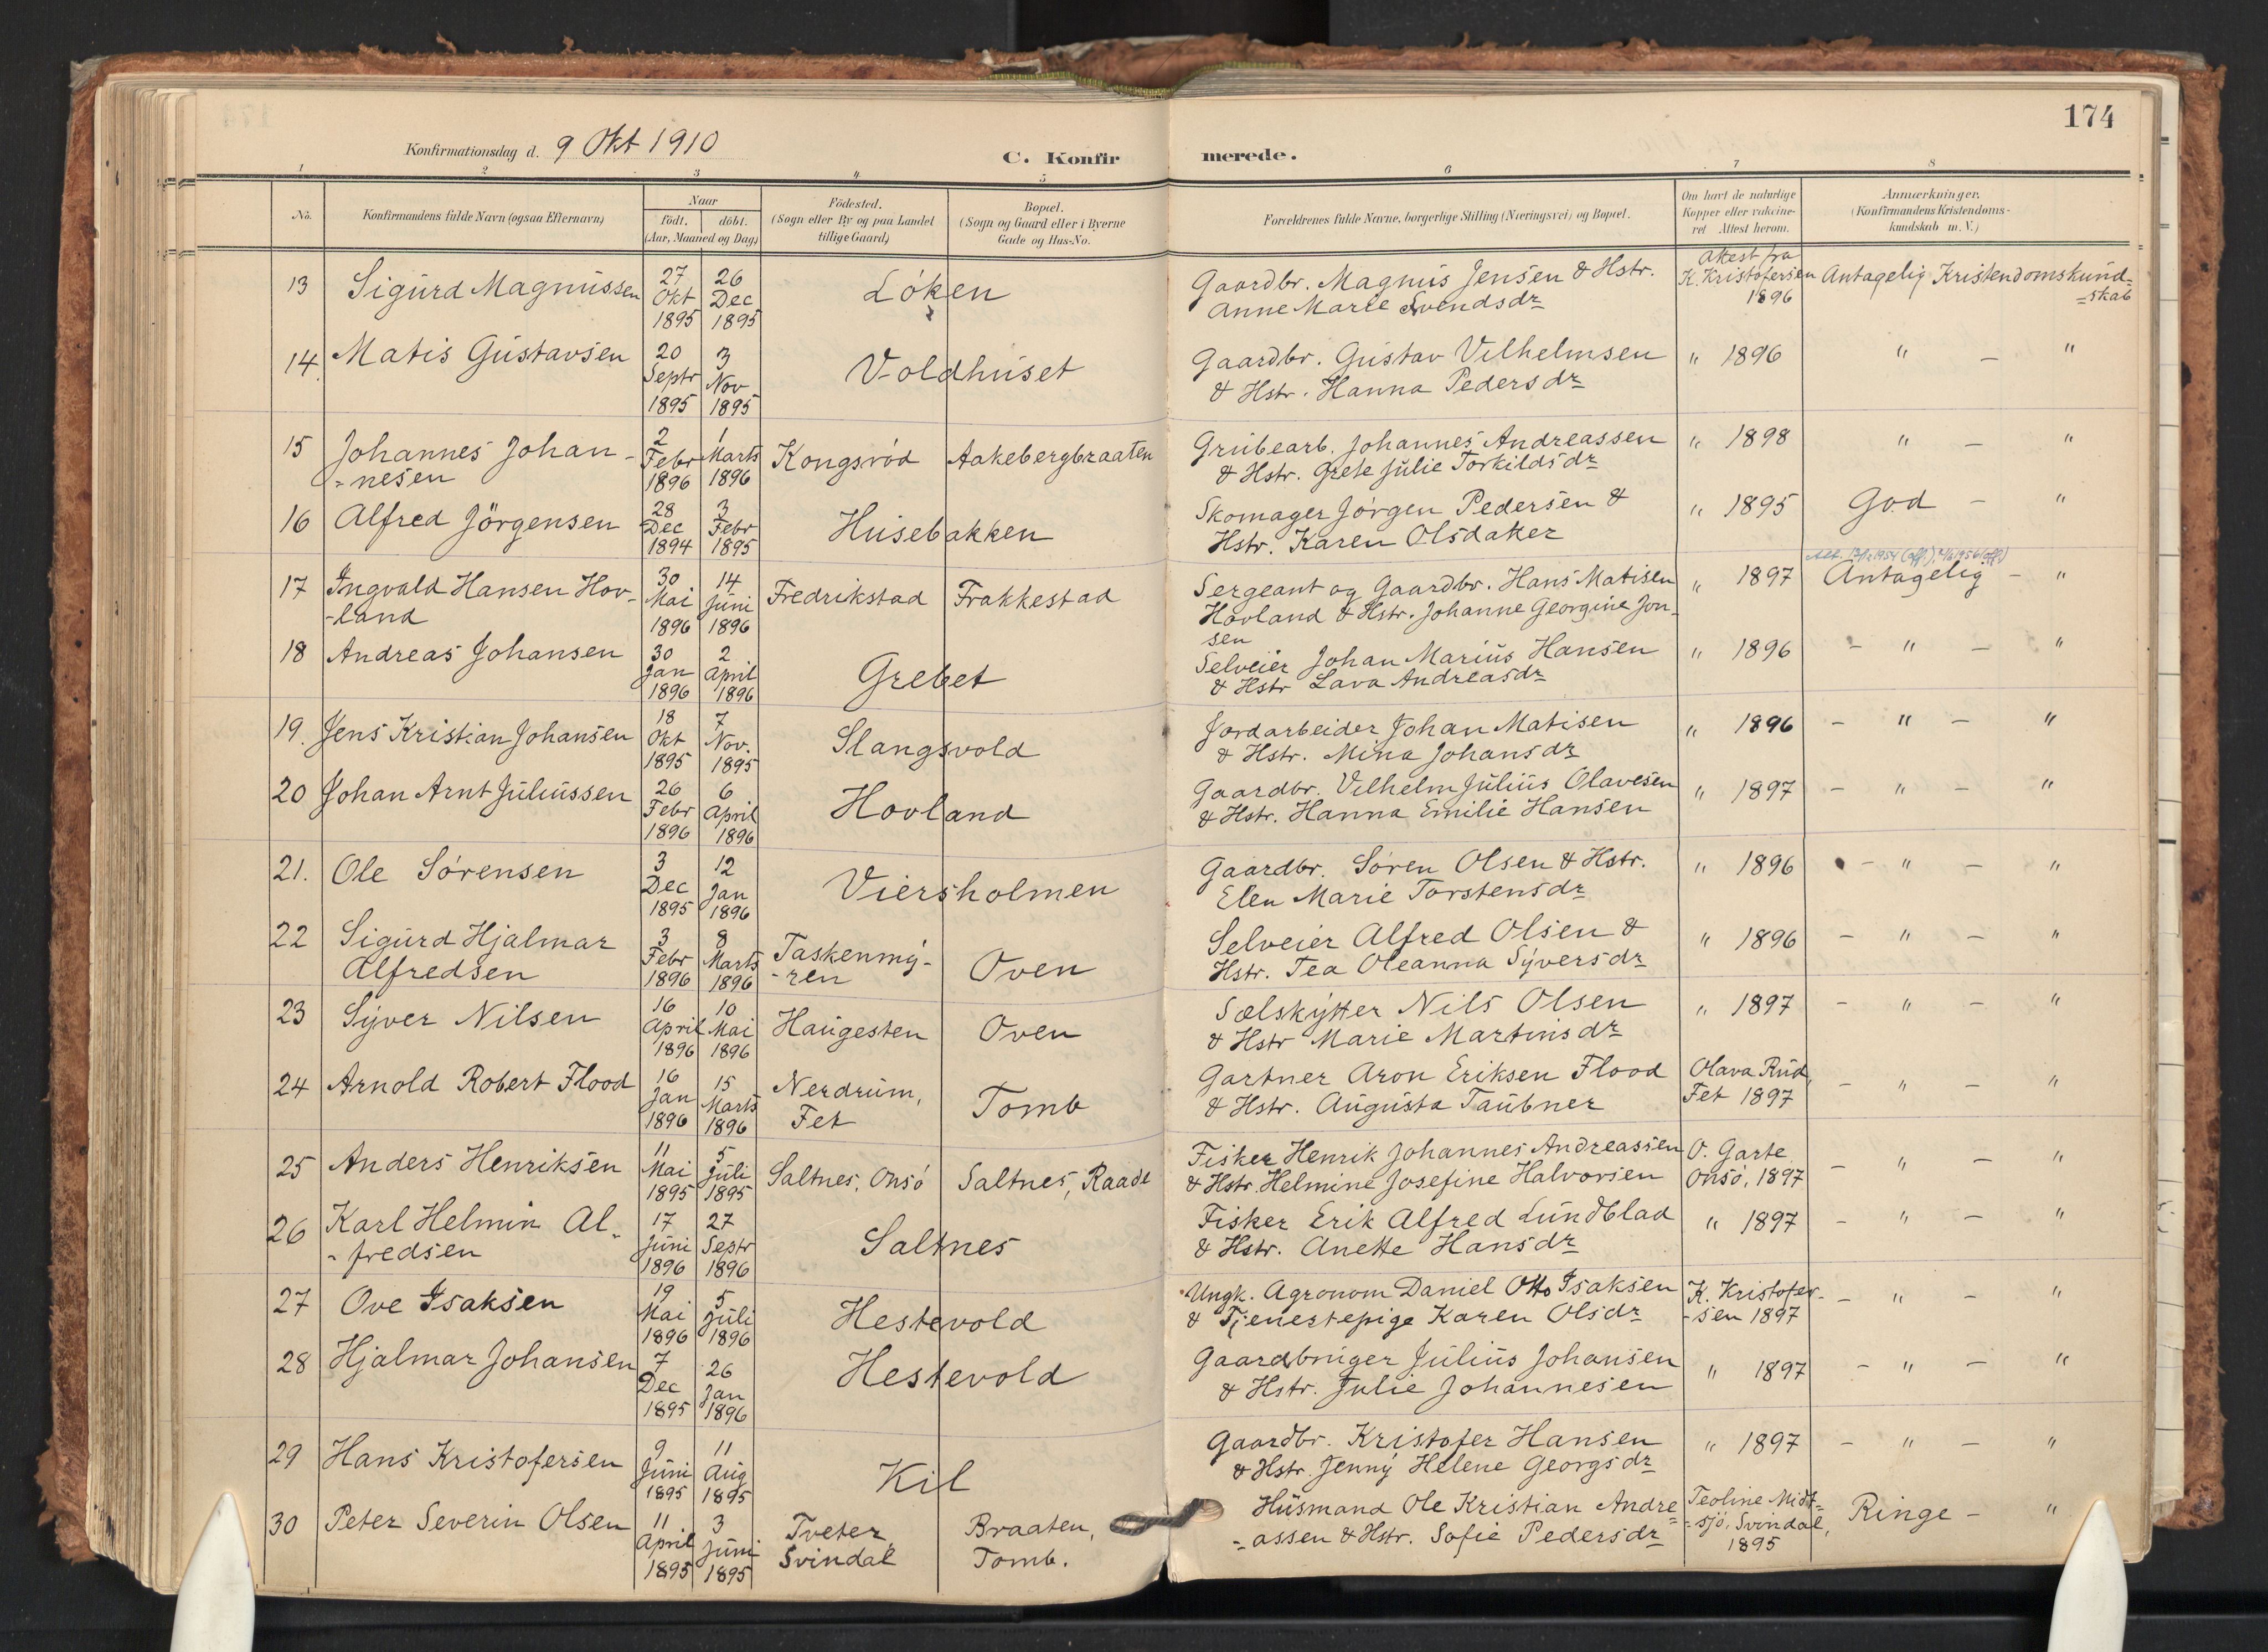 174
Konfirmationsdag d. 9 Okt 1910
C. Konfir merede.
1 2 3 4 5 6 7 8
No.
Konfirmandens fulde Navn (ogsaa Efternavn)
Naar
født. døbt.
(Aar, Maaned og Dag)
Födested.
(Sogn eller By og paa Landet
tillige Gaard)
Bopæl.
(Sogn og Gaard eller i Byerne
Gade og Hus-No.
Forældrenes fulde Navne, borgerlige Stilling (Næringsvei) og Bopæl.
Om havt de naturlige
Kopper eller vakcine-
ret Attest herom.
Anmærkninger.
(Konfirmandens Kristendoms-
kundskab m. V.)
13 Sigurd Magnussen 27 Okt 1895 26 Dec 1895 Löken
Gaardbr. Magnus Jensen & Hstr.
Anne Marie Svendsdr
Attest fra
K. Kristofersen
1896
Antagelig Kristendomskund-
-skab
14. Matis Gustavsen 20 Septr 1895 3 Nov 1895 Voldhuset
Gaardbr. Gustav Vilhelmsen
& Hstr. Hanna Pedersdr
" 1896 " — "
15 Johannes Johan-
-nesen
2 Febr 1896 1 Marts 1896 Kongsröd Aakebergbraaten
Grubearb. Johannes Andreassen
& Hstr. Grete Julie Torkildsdr
" 1898 " — "
16 Alfred Jörgensen 28 Dec 1894 3 Febr 1895 Husebakken
Skomager Jörgen Pedersen &
Hstr. Karen Olsdatter
" 1895 God — "
17 Ingvald Hansen Hov-
-land
30 Mai 1896 14 Juni 1896 Fredrikstad Frakkestad
Sergeant og Gaardbr. Hans Matisen
Hovland & Hstr. Johanne Georgine Jon-
sen
" 1897 Antagelig — "
18 Andreas Johansen 30 Jan 1896 2 April 1896 Grebet
Selveier Johan Marius Hansen
& Hstr Lava Andreasdr
" 1896 — " — "
19. Jens Kristian Johansen 18 Okt 1895 7 Nov. 1895 Slangsvold
Jordarbeider Johan Matisen
& Hstr. Mina Johansdr
" 1896 — " — "
20 Johan Arnt Juliussen 26 Febr 1896 6 April 1896 Hovland
Gaardbr. Vilhelm Julius Olavesen
& Hstr. Hanna Emilie Hansen
" 1897 — " — "
21. Ole Sörensen 3 Dec 1895 12 Jan 1896 Viersholmen
Gaardbr. Sören Olsen & Hstr.
Elen Marie Torstensdr
" 1896 — " — "
22 Sigurd Hjalmar
Alfredsen
3 Febr 1896 8 Marts 1896 Taskenmy-
-ren
Oven
Selveier Alfred Olsen &
Hstr. Tea Oleanna Syversdr
" 1896 — " — "
23 Syver Nilsen 16 April 1896 10 Mai 1896 Haugesten Oven
Sælskytter Nils Olsen
& Hstr Marie Martinsdr
" 1897 — " — "
24 Arnold Robert Flood 16 Jan 1896 15 Marts 1896 Nerdrum,
Fet
Tomb
Gartner Aron Eriksen Flood
& Hstr. Augusta Taubner
Olava Rud,
Fet 1897
— " — "
25 Anders Henriksen 11 Mai 1895 5 Juli 1895 Saltnes, Onsö Saltnes, Raade
Fisker Henrik Johannes Andreassen
& Hstr. Helmine Josefine Halvorsen
O. Garte
Onsö, 1897
— " — "
26 Karl Helmin Al-
-fredsen
17 Juni 1896 27 Septr 1896 Saltnes
Fisker Erik Alfred Lundblad
& Hstr. Anette Hansdr
" 1897 — " — "
27 Ove Isaksen 19 Mai 1896 5 Juli 1896 Hestevold
Ungk. Agronom Daniel Otto Isaksen
& Tjenestepige Karen Olsdr
K. Kristofer-
-sen 1897
— " — "
28 Hjalmar Johansen 7 Dec 1895 26 Jan 1896 Hestevold
Gaardbruger Julius Johansen
& Hstr. Julie Johannesen
" 1897 — " — "
29 Hans Kristofersen 9 Juni 1895 11 Aug 1895 Kil
Gaardbr. Kristofer Hansen
& Hstr. Jenny Helene Georgsdr
" 1897 — " — "
30 Peter Severin Olsen 11 April 1895 3 Juni 1895 Tveter,
Svindal
Braaten,
Tomb.
Husmand Ole Kristian Andre-
-assen & Hstr. Sofie Pedersdr
Teoline Midt-
-sjö, Svindal,
1895
Ringe — "